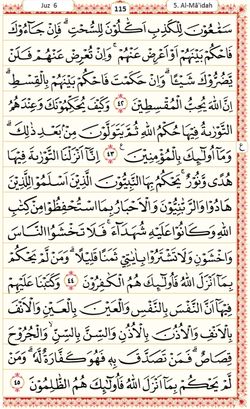 Juz 6
115
5. Al-Mâ'idah
سَمّٰعُوْنَ لِلْكَذِبِ اَكّٰلُوْنَ لِلسُّحْتِۗ فَاِنْ جَاۤءُوْكَ
فَاحْكُمْ بَيْنَهُمْ اَوْ اَعْرِضْ عَنْهُمْ ۚ وَاِنْ تُعْرِضْ عَنْهُمْ فَلَنْ
يَّضُرُّوْكَ شَيْـًٔا ۗ وَاِنْ حَكَمْتَ فَاحْكُمْ بَيْنَهُمْ بِالْقِسْطِۗ
اِنَّ اللّٰهَ يُحِبُّ الْمُقْسِطِيْنَ ٤٢ وَكَيْفَ يُحَكِّمُوْنَكَ وَعِنْدَهُمُ
التَّوْرٰىةُ فِيْهَا حُكْمُ اللّٰهِ ثُمَّ يَتَوَلَّوْنَ مِنْۢ بَعْدِ ذٰلِكَ ۗ
وَمَآ اُولٰۤىِٕكَ بِالْمُؤْمِنِيْنَ ٤٣ ع اِنَّآ اَنْزَلْنَا التَّوْرٰىةَ فِيْهَا
ع
هُدًى وَّنُوْرٌ ۚ يَحْكُمُ بِهَا النَّبِيُّوْنَ الَّذِيْنَ اَسْلَمُوْا لِلَّذِيْنَ
هَادُوْا وَالرَّبّٰنِيُّوْنَ وَالْاَحْبَارُ بِمَا اسْتُحْفِظُوْا مِنْ كِتٰبِ
اللّٰهِ وَكَانُوْا عَلَيْهِ شُهَدَاۤءَ ۚ فَلَا تَخْشَوُا النَّاسَ
وَاخْشَوْنِ وَلَا تَشْتَرُوْا بِاٰيٰتِيْ ثَمَنًا قَلِيْلًا ۗ وَمَنْ لَّمْ يَحْكُمْ
بِمَآ اَنْزَلَ اللّٰهُ فَاُولٰۤىِٕكَ هُمُ الْكٰفِرُوْنَ ٤٤ وَكَتَبْنَا عَلَيْهِمْ
فِيْهَآ اَنَّ النَّفْسَ بِالنَّفْسِ وَالْعَيْنَ بِالْعَيْنِ وَالْاَنْفَ
بِالْاَنْفِ وَالْاُذُنَ بِالْاُذُنِ وَالسِّنَّ بِالسِّنِّ ۙ وَالْجُرُوْحَ
قِصَاصٌ ۗ فَمَنْ تَصَدَّقَ بِهٖ فَهُوَ كَفَّارَةٌ لَّهٗ ۗ وَمَنْ
لَّمْ يَحْكُمْ بِمَآ اَنْزَلَ اللّٰهُ فَاُولٰۤىِٕكَ هُمُ الظّٰلِمُوْنَ ٤٥